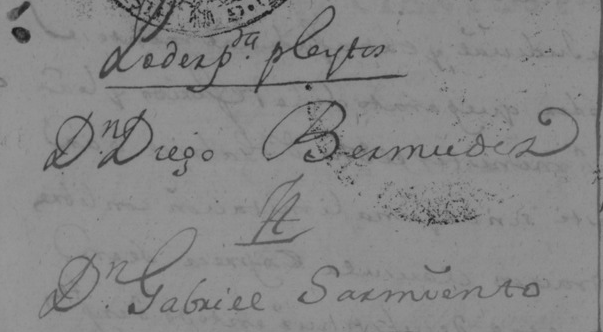 Poder pa. pleytos
Dn. Diego Bermudez
A
Dn. Gabriel Sarmiento